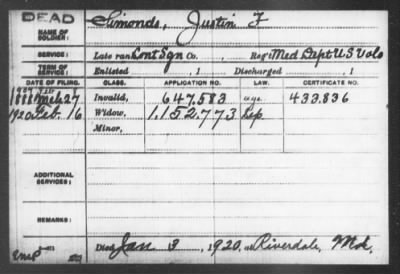 DEAD
NAME OF SOLDIER: Simonds, Justin F
SERVICE: Late rank Cont Sgn Co. , Reg't Med Dept U S Vols
TERM OF SERVICE: Enlisted , 1 Discharged , 1
DATE OF FILING. CLASS. APPLICATION NO. LAW. CERTIFICATE NO.
1888 Mch 27 Invalid, 647.583 433.836
1920 Feb. 16 Widow, 1.152.773
Minor,
ADDITIONAL SERVICES:
REMARKS:
Died Jan 3, 1920, at Riverdale, Md.